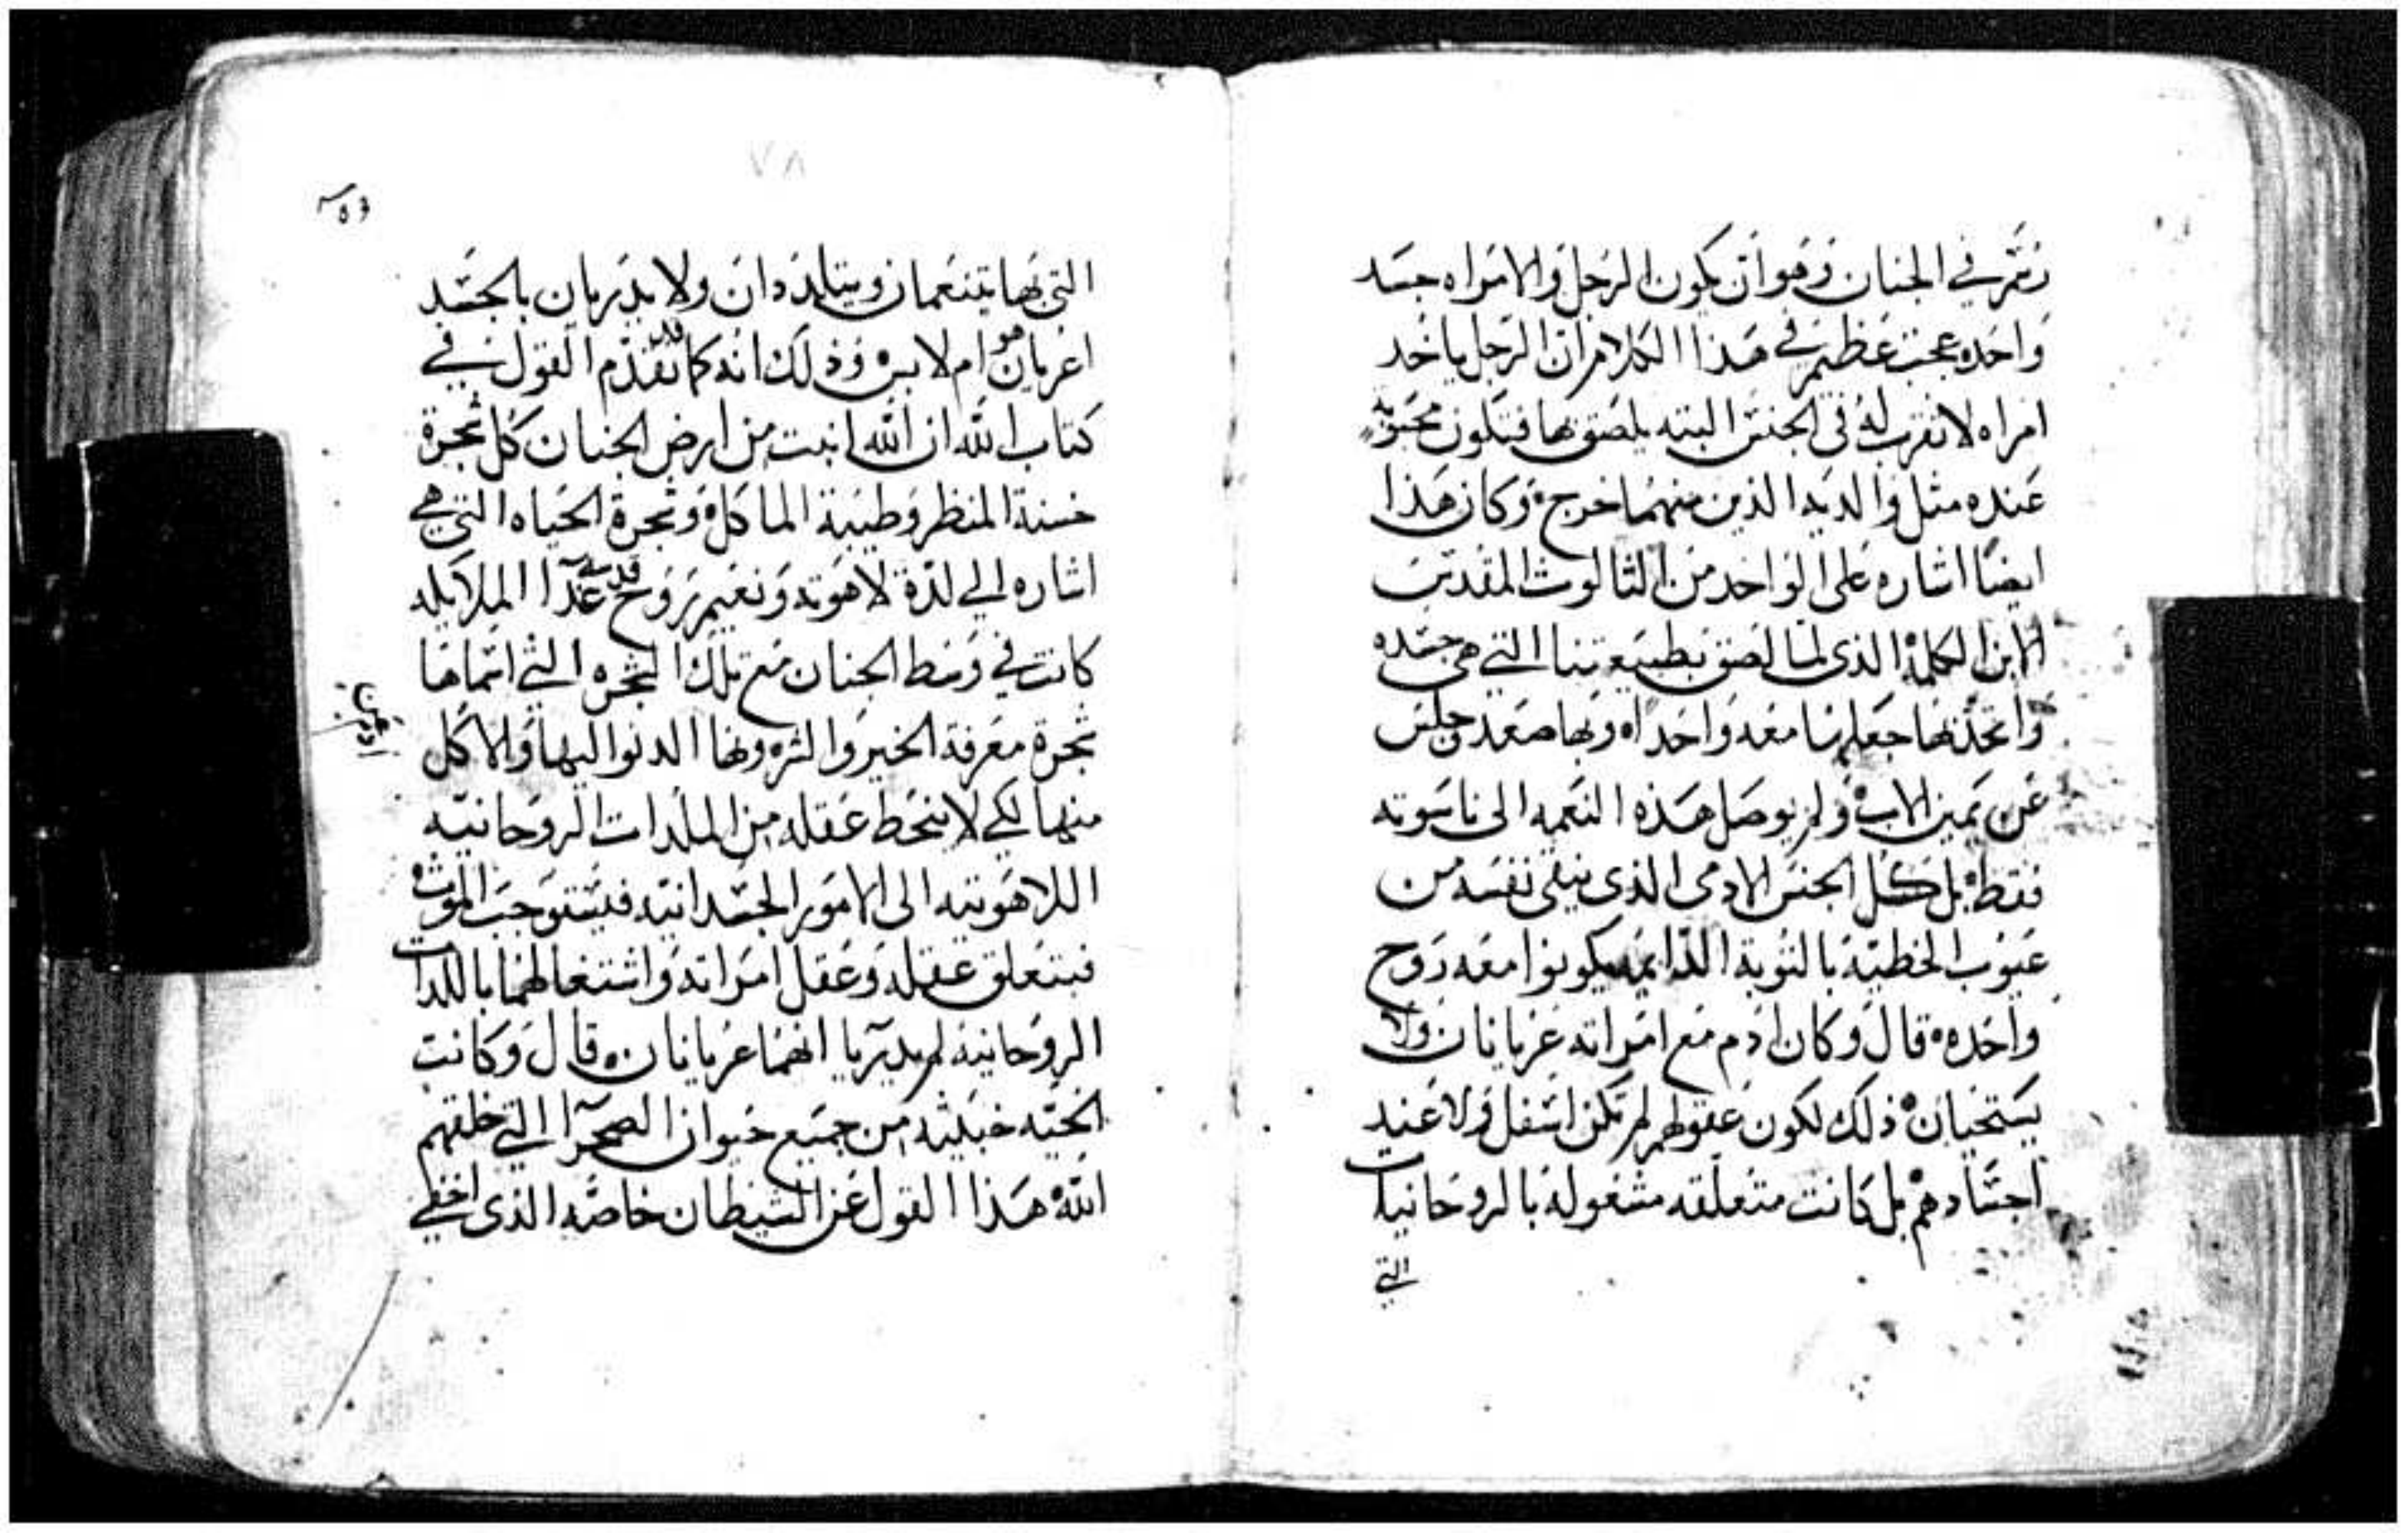 في الجنان وهو ان يكون الرجل والامراه جسد
واحده عجب عظيم في هذا الكلام ان الرجل ياخد
امراه لا تقرب له في الجنس البته يلصق بها فتكون محبوبه
عنده مثل والديه الذين منهما خرج وكان هذا
ايضًا اشاره على الواحد من الثالوث المقدس
الابن الكلمة الذي لما لصق بطبيعتنا التي هي جسده
واتخذها جعلها معه واحداه وبها صعد جلس
عن يمين الاب ولم يوصل هذه النعمه الى ناسوته
فقط بل كل الجنس الادمى الذى ينقى نفسه من
عيوب الخطيّه بالتوبة الدايمه يكونوا معه روح
واحده قال وكان ادم مع امراته عريانان ولا
يستحيان ذلك لكون عقولهم لم تكن اسفل ولا عند
اجسادهم بل كانت متعلقه مشغوله بالروحانيات
التي
٧٨
التي بها يتنعمان ويتلددان ولا يدريان بالجسد
اعريان هو ام لابس وذلك انه كما قد تقدم القول في
كتاب الله ان الله انبت من ارض الجنان كل شجرة
حسنة المنظر وطيبة الماكل وشجرة الحياه التي هي
اشاره الي لدة لاهوته ونعيم روح قدسه غدا الملايكه
كانت في وسط الجنان مع تلك الشجره التي اسماها
شجرة معرفة الخير والشر ونها الدنوا اليها والاكل
منها لكي لا ينحط عقله من الملدات الروحانيه
اللاهوتيه الى الامور الجسدانيه فيستوجب الموت
فبتعلق عقله وعقل امراته واشتغالهما باللدات
الروحانيه لم يدريا انهما عريانان قال وكانت
الحيّه خبيثه من جميع حيوان الصحرآ التي خلقهم
الله هذا القول عن الشيطان خاصه الذى اخفي